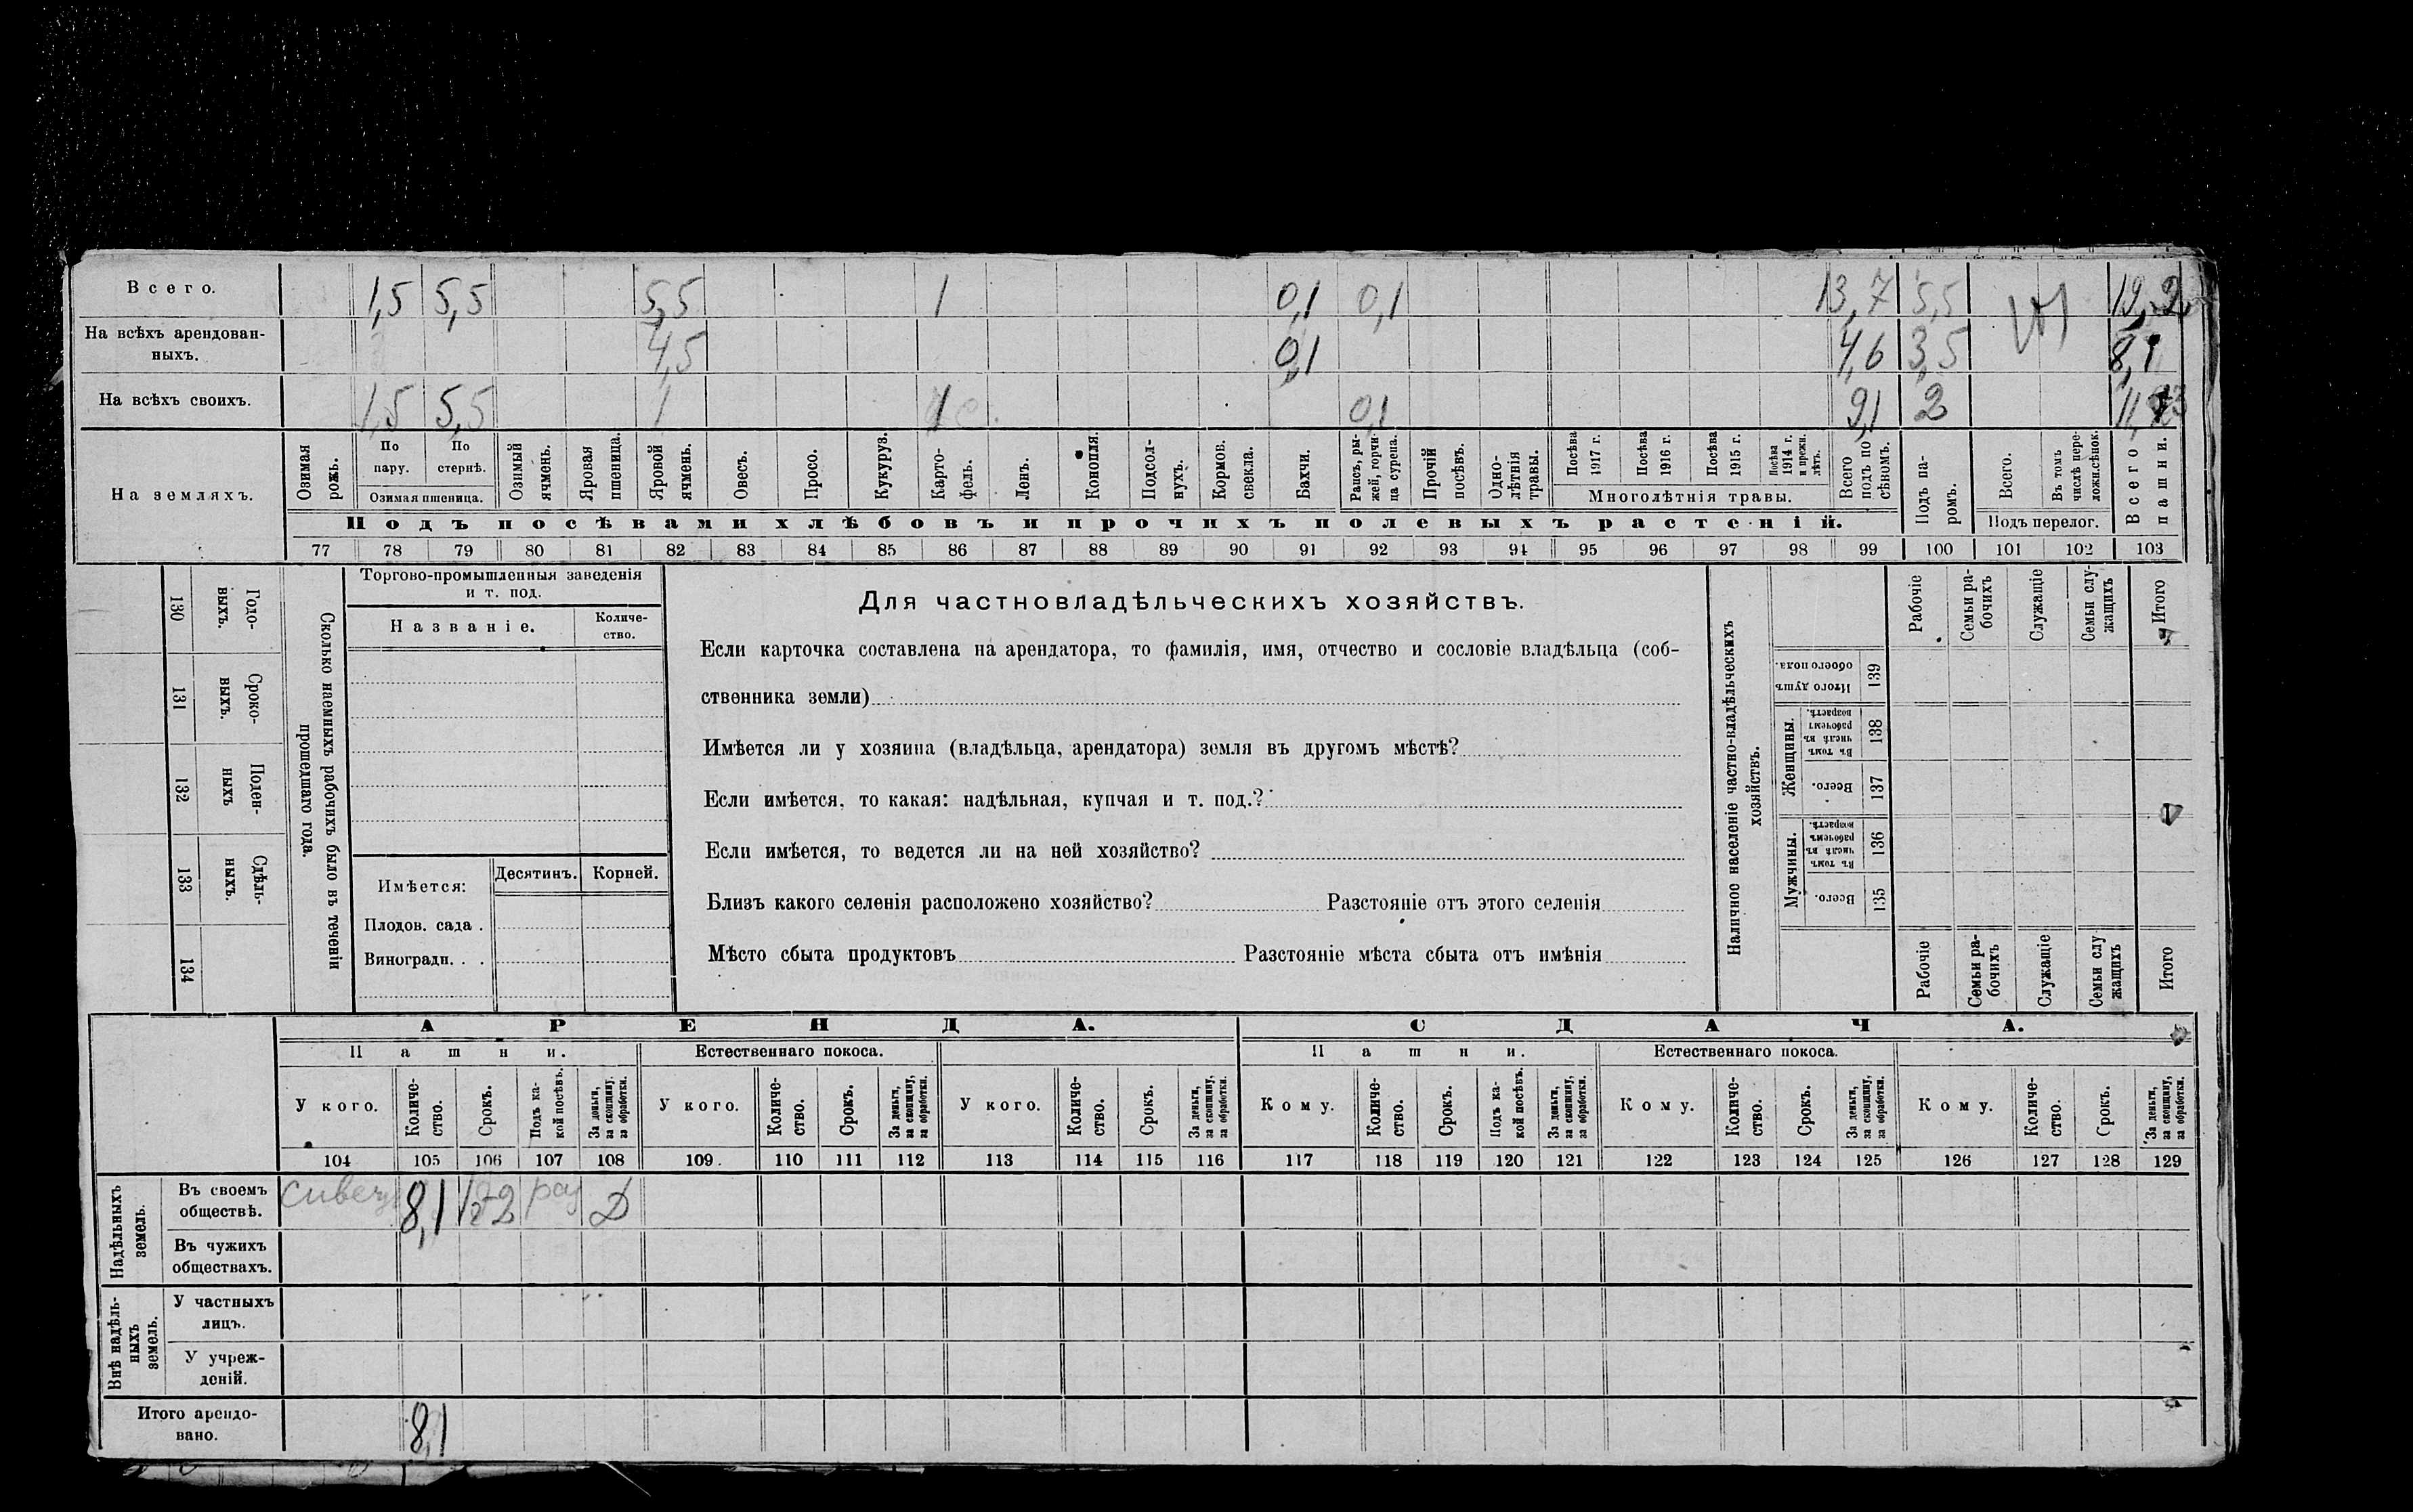 Всего. 1,5 5,5 5,5 1 0,1 0,1 13,7 5,5 19,2
На всѣхъ арендован-
ныхъ. 4,5 0,1 4,6 3,5 8,1
На всѣхъ своихъ. 1,5 5,5 1 1 0,1 9,1 2
На земляхъ.
Озимая рожь.
По пару.
По стернѣ.
Озимая пшеница.
Озимый ячмень.
Яровая пшеница.
Яровой ячмень.
Овесъ.
Просо.
Кукуруз.
Карто-
фель.
Ленъ.
Конопля.
Подсол-
нухъ.
Кормов. свекла.
Бахчи.
Рапсъ, ры-
жей, горчи-
ца сурепа.
Прочій посѣвъ.
Одно-
лѣтнія травы.
Посѣва 1917 г.
Посѣва 1916 г.
Посѣва 1915 г.
Посѣва 1914 г. и прежн. лѣтъ.
Многолѣтнія травы.
Всего подъ по
сѣвомъ.
Подъ па-
ромъ.
Всего.
Въ томъ числѣ пере-
ложн.сѣнок.
Подъ перелог.
Всего пашни.
Подъ посѣвами хлѣбовъ и прочихъ полевыхъ растеній.
77 78 79 80 81 82 83 84 85 86 87 88 89 90 91 92 93 94 95 96 97 98 99 100 101 102 103
130 Годо-
выхъ.
131 Сроко-
выхъ.
132 Поден-
ныхъ
133 Сдѣль-
ныхъ.
134
Сколько наемныхъ рабочихъ было въ теченіи
прошедшаго года.
Торгово-промышленныя заведенія
и т. под.
Названіе.
Количе-
ство.
Имѣется: Десятинъ. Корней.
Плодов. сада .
Виноградн. . .
Для частновладѣльческихъ хозяйствъ.
Если карточка составлена на арендатора, то фамилія, имя, отчество и сословіе владѣльца (соб-
ственника земли)
Имѣется ли у хозяина (владѣльца, арендатора) земля въ другомъ мѣстѣ?
Если имѣется, то какая: надѣльная, купчая и т. под.?
Если имѣется, то ведется ли на ней хозяйство?
Близъ какого селенія расположено хозяйство? Разстояніе отъ этого селенія
Мѣсто сбыта продуктовъ Разстояніе мѣста сбыта отъ имѣнія
Наличное населеніе частно-владѣльческихъ
хозяйствъ.
Рабочіе
Семьи ра-
бочихъ
Служащіе
Семьи слу-
жащихъ
Итого
Итого душъ обоего пола. 139
Женщины.
Въ томъ числѣ въ рабочемъ возрастѣ. 138
Всего. 137
Мужчины.
Въ томъ числѣ въ рабочемъ возрастѣ. 136
Всего. 135
Рабочіе
Семьи ра-
бочихъ
Служащіе
Семьи слу
жащихъ
Итого
АРЕНДА. СДАЧА.
Пашни. Естественнаго покоса. Пашни. Естественнаго покоса.
У кого.
Количе-
ство.
Срокъ.
Подъ ка-
кой посѣвъ.
За деньги, за скопщину, за обработки.
У кого.
Количе-
ство.
Срокъ.
За деньги, за скопщину, за обработки.
У кого.
Количе-
ство.
Срокъ.
За деньги, за скопщину, за обработки.
Кому.
Количе-
ство.
Срокъ.
Подъ ка-
кой посѣвъ.
За деньги, за скопщину, за обработки.
Кому.
Количе-
ство.
Срокъ.
За деньги, за скопщину, за обработки.
Кому.
Количе-
ство.
Срокъ.
За деньги, за скопщину, за обработки.
104 105 106 107 108 109. 110 111 112 113 114 115 116 117 118 119 120 121 122 123 124 125 126 127 128 129
Надѣльныхъ земель.
Въ своемъ
обществѣ. 8,1 Д
Въ чужихъ
обществахъ.
Внѣ надѣль-
ныхъ земель.
У частныхъ
лицъ.
У учреж-
деній.
Итого арендо-
вано. 8,1